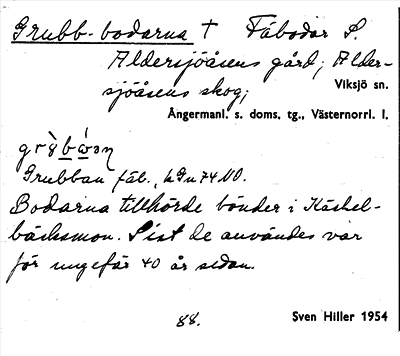 Grubb-bodarna † Fäbodar S.
Aldersjöåsens gård; Alder-
sjöåsens skog;
Viksjö sn.
Ångermanl. s. doms. tg., Västernorrl. l.
Grubban fäb.
Bodarna tillhörde bönder i Käckel-
bäcksmon. Sist de användes var
för ungefär 40 år sedan.
88.
Sven Hiller 1954